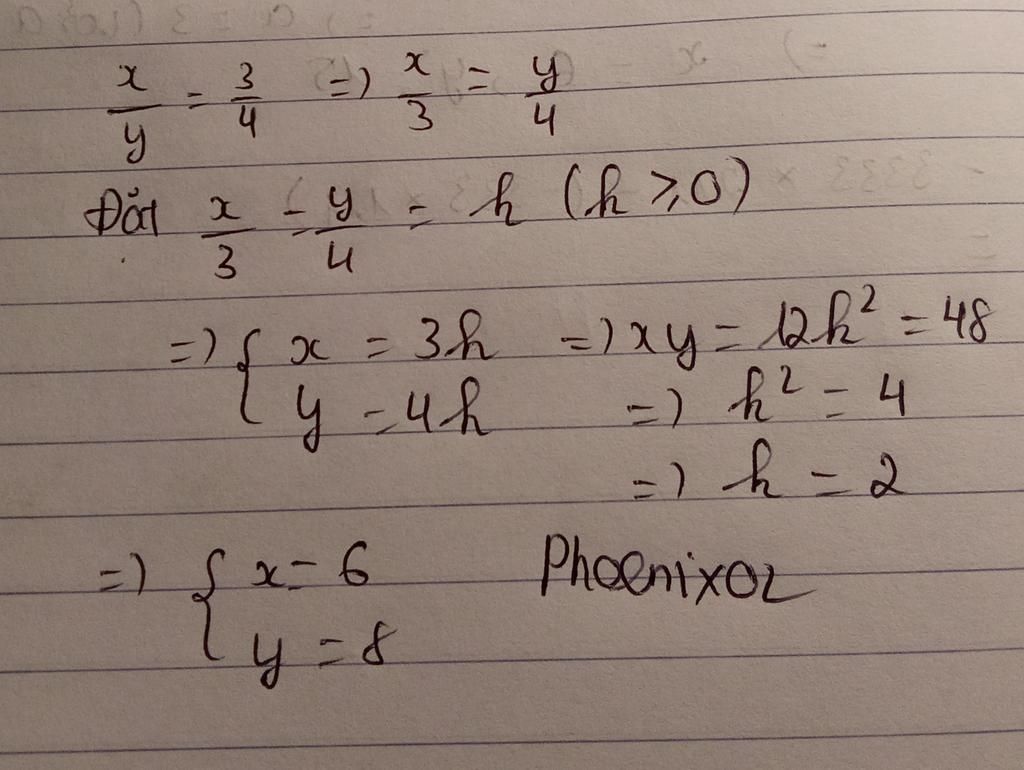 x/y = 3/4 => x/3 = y/4
Đặt x/3 = y/4 = k (k ≥ 0)
=> { x = 3k => xy = 12k² = 48
y = 4k => k² = 4
=> k = 2
=> { x = 6 Phoenixoz
y = 8